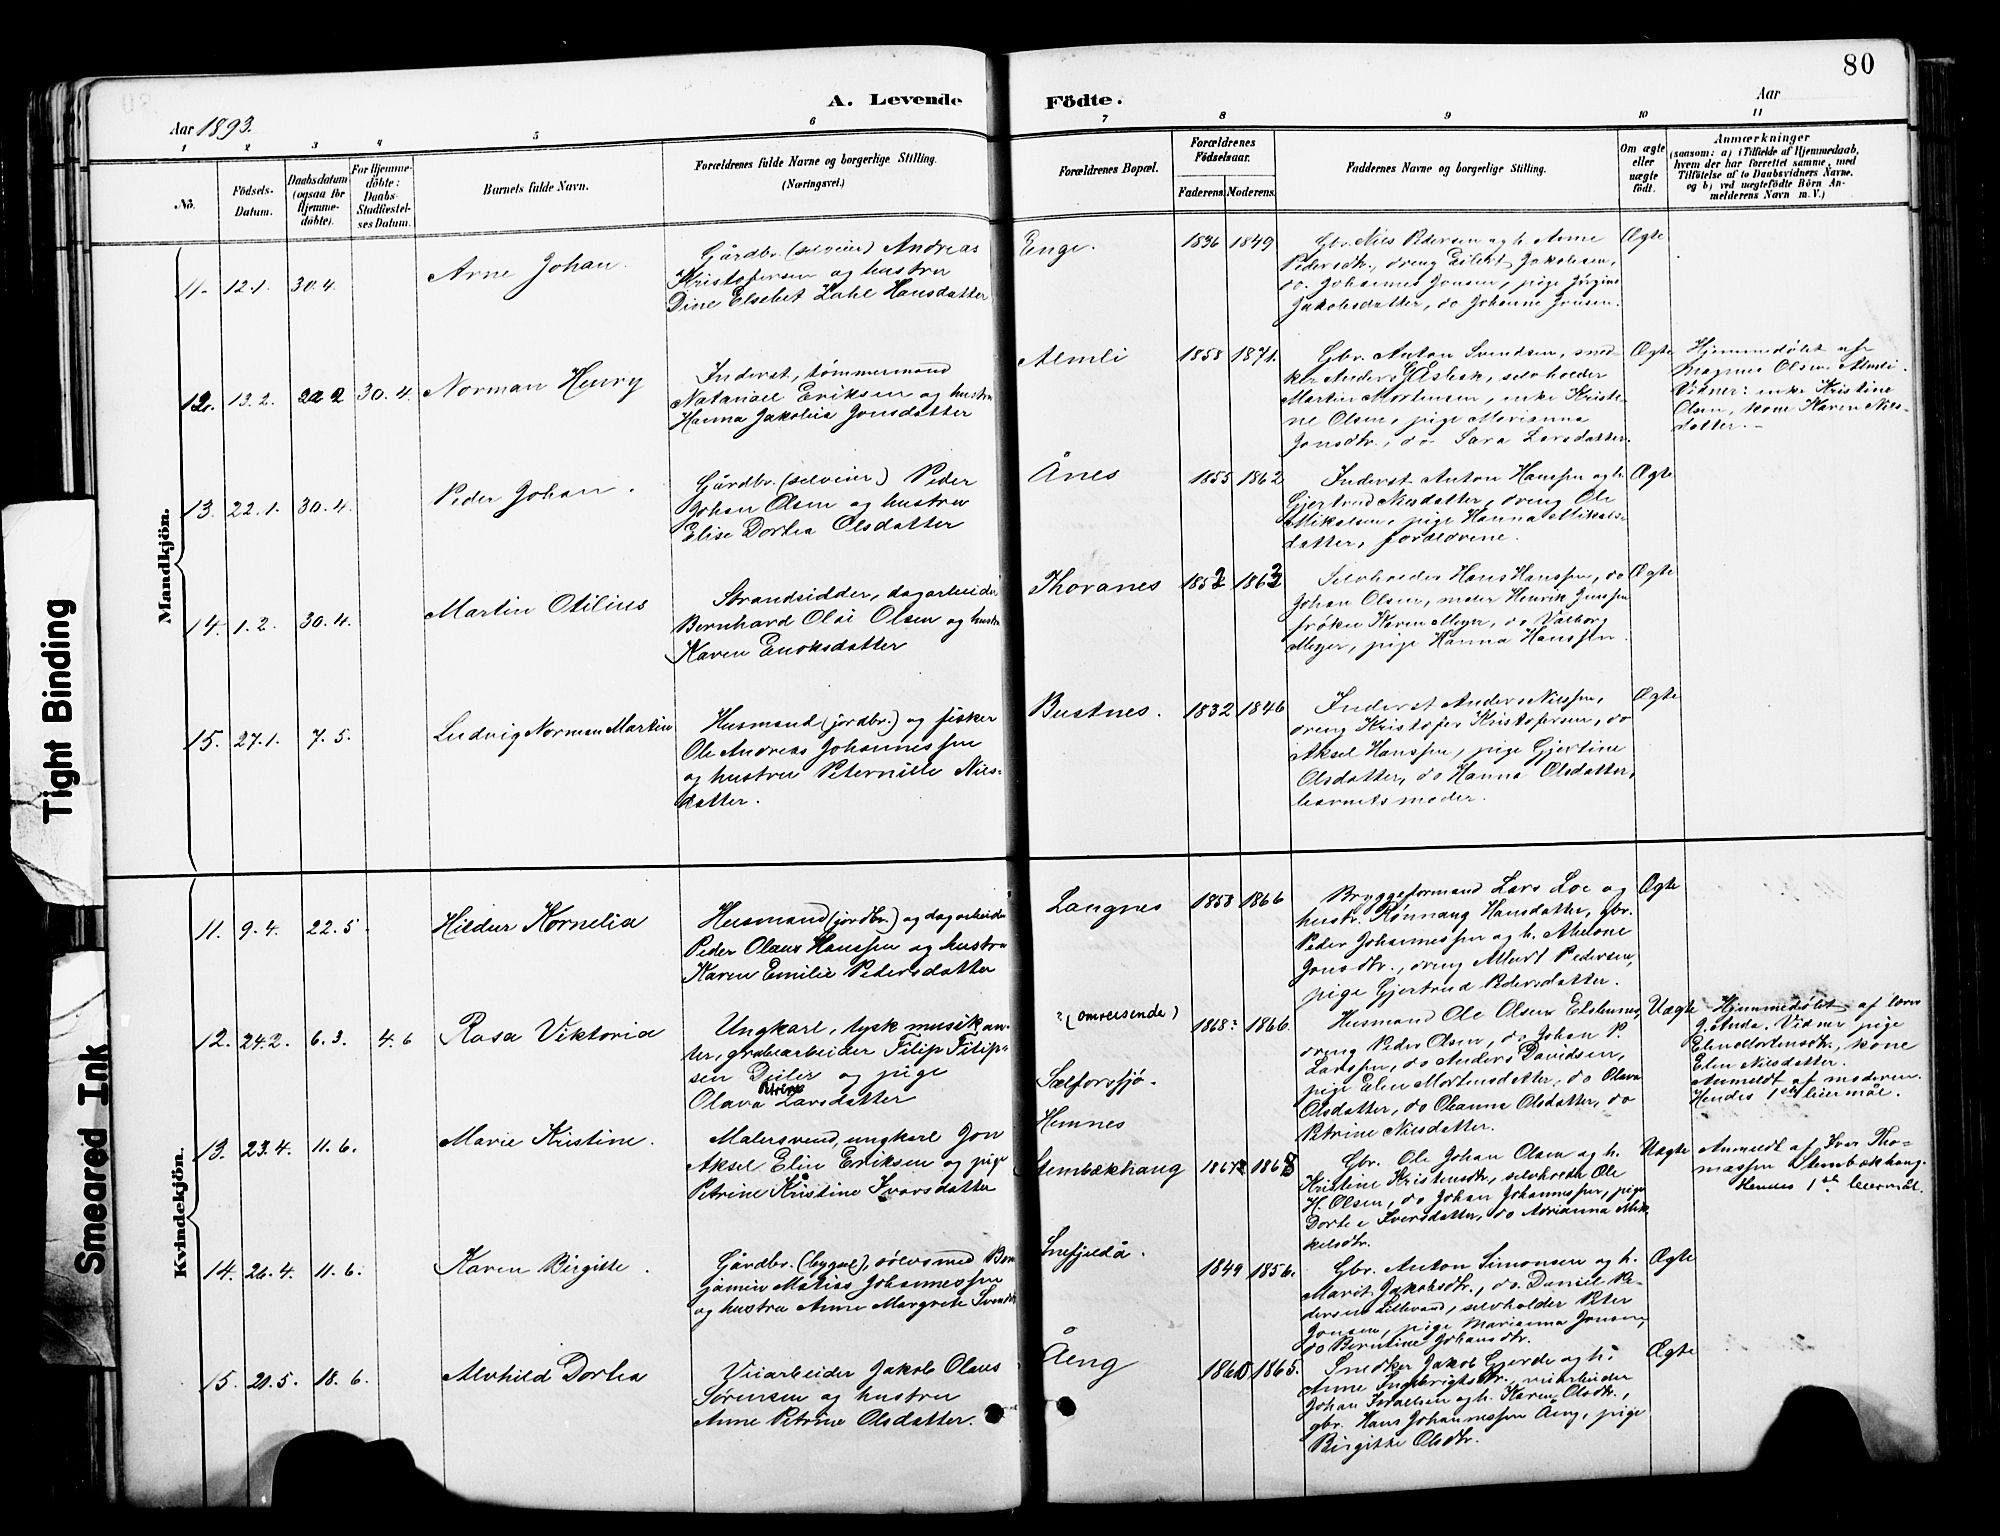 80
A. Levende Födte.
Aar 1893.
Aar
1 2 3 4 5 6 7 8 9 10 11
No.
Födsels-Datum.
Daabsdatum (ogsaa for Hjemme-döbte).
For Hjemme-döbte: Daabs-Stadfæstel-ses Datum.
Barnets fulde Navn.
Forældrenes fulde Navne og borgerlige Stilling.
(Næringsvei.)
Forældrenes Bopæl.
Forældrenes Födselsaar.
Faderens. Moderens.
Faddernes Navne og borgerlige Stilling.
Om ægte eller uægte födt.
Anmærkninger
(saasom: a) i Tilfælde af Hjemmedaab,
hvem der har forrettet samme, med
Tilföielse af to Daabsvidners Navne,
og b) ved uægtefödte Börn An-
melderens Navn m. V.)
Mandkjön.
11. 12.1. 30.4. Arne Johan.
Gårdbr. (selveier) Andreas
Kristofersen og hustru
Dine Elsebet Zahl Hansdatter
Enge. 1836 1849
Gbr. Niels Pedersen og h. Anne
Pedersdtr., dreng Eilert Jakobsen,
do. Johannes Jonsen, pige Jørgine
Jakobsdatter, do Johanne Jonsen.
Ægte
12. 13.2. 22.2 30.4. Norman Henry
Inderst, tømmermand
Natanael Eriksen og hustru
Hanna Jakobia Jonsdatter
Almli 1858 1871.
Gbr. Anton Svendsen, sned-
ker Anders Elsbak, selvholder
Martin Mortensen, enke Kristi-
ne Olsen, pige Marianna
Jonsdtr., do Sara Larsdatter.
Ægte
Hjemmedøbt af
Magnus Olsen Almli.
Vidner: enke Kristine
Olsen, kone Karen Niels-
datter.
13. 22.1. 30.4. Peder Johan.
Gårdbr. (selveier) Peder
Johan Olsen og hustru
Elise Dortea Olsdatter
Ånes 1855 1862
Inderst Anton Hanssen og h.
Gjertrud Nilsdatter, dreng Ole
Mikalsen, pige Hanna Mikals-
datter, forældrene.
Ægte
14. 1.2. 30.4. Martin Otilius
Strandsidder, dagarbeider
Bernhard Olai Olsen og hustru
Karen Enoksdatter
Thoranes 1852 1863
Selvholder Hans Hanssen, do
Johan Olsen, maler Henrik Jenssen
frøken Karen Meyer, do Valborg
Meyer, pige Hanna Hanssen.
Ægte
15. 27.1. 7.5. Ludvig Norman Martin
Husmand (jordbr.) og fisker
Ole Andreas Johannessen
og hustru Peternille Niels-
datter.
Bustnes. 1832 1846
Inderst Anders Nilssen,
dreng Kristofer Kristofersen, do
Aksel Hanssen, pige Gjertine
Olsdatter, do Hanna Olsdatter,
barnets moder.
Ægte
Kvindekjön.
11. 9.4. 22.5. Hildur Kornelia
Husmand (jordbr.) og dagarbeider
Peder Olaus Hanssen og hustru
Karen Emilie Pedersdatter
Langnes 1858 1866
Bryggeformand Lars Loe og
hustr. Rønnaug Hansdatter, gbr.
Peder Johannessen og h. Abelone
Jonsdtr., dreng Albert Pedersen,
pige Gjertrud Pedersdatter.
Ægte
12. 24.2. 6.3. 4.6 Rosa Viktoria
Ungkarl, tysk musikan-
ter, grubearbeider Filip Filip-
sen Deiler og pige
Olava Petrea Larsdatter
? (omreisende)
Sælforsfjø-
Hemnes
1868? 1866.
Husmand Ole Olsen
dreng Peder Olsen, do Johan P.
Larssen, do Anders Davidsen,
pige Elen Mortensdatter, do Olava
Olsdatter, do Oleanna Olsdatter, do
Petrine Nilsdatter.
Uægte
Hjemmedøbt af lærer
Vidner pige
Elen Mortensdtr., kone
Elen Nilsdatter.
Anmeldt af moderen.
Hendes 1ste leiermål.
13. 23.4. 11.6. Marie Kristine.
Malersvend, ungkarl Jon
Aksel Elin Eriksen og pige
Petrine Kristine Ivarsdatter
Stenbækhaug 1867 1868
Gbr. Ole Johan Olsen og h.
Kristine Kristensdtr., selvholder Ole
H. Olsen, do Johan Johannessen, pige
Dortea Iversdatter, do Adrianna Mik-
kelsdtr.
Uægte
Anmeldt af Iver Tho-
massen Stenbækhaug.
Hendes 1ste leiermål.
14. 26.4. 11.6. Karen Birgitte.
Gårdbr. (bygsel), sølvsmed Ben-
jamin Matias Johannessen
og hustru Anne Margrete Svendsdtr
Snefjeldå. 1849 1856.
Gbr. Anton Simonsen og h.
Marit Jakobsdtr., do. Daniel Pe-
dersen Lillevand, selvholder Peter
Jonsen, pige Marianna Jonsen,
do Berntine Johansdtr.
Ægte
15. 21.5. 18.6. Alvhild Dortea
Veiarbeider Jakob Olaus
Sørensen og hustru
Anne Petrine Olsdatter.
Åeng 1860 1865.
Snedker Jakob Gjerde og h.
Anne Ingebrigtsdtr., veiarbeider
Johan Israelsen og h. Karen Olsdtr.,
gbr. Hans Johannessen Åeng, pige
Birgitte Olsdtr.
Ægte
Tight Binding
Smeared Ink